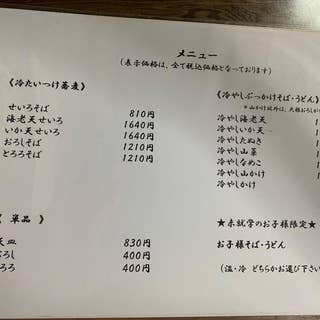 メニュー
(表示価格は、全て税込価格となっております)
《冷たいつけ蕎麦》
せいろそば 810円
海老天せいろ 1640円
いか天せいろ 1640円
おろしそば 1210円
とろろそば 1210円
《 単品 》
天皿 830円
おろし 400円
とろろ 400円
《冷やしぶっかけそば・うどん》
※山かけ以外は、大根おろしが
冷やし海老天
冷やしいか天
冷やしたぬき
冷やし山菜
冷やしなめこ
冷やし山かけ
冷やしかけ
★未就学のお子様限定★
お子様そば・うどん
(温・冷 どちらかお選び下さい